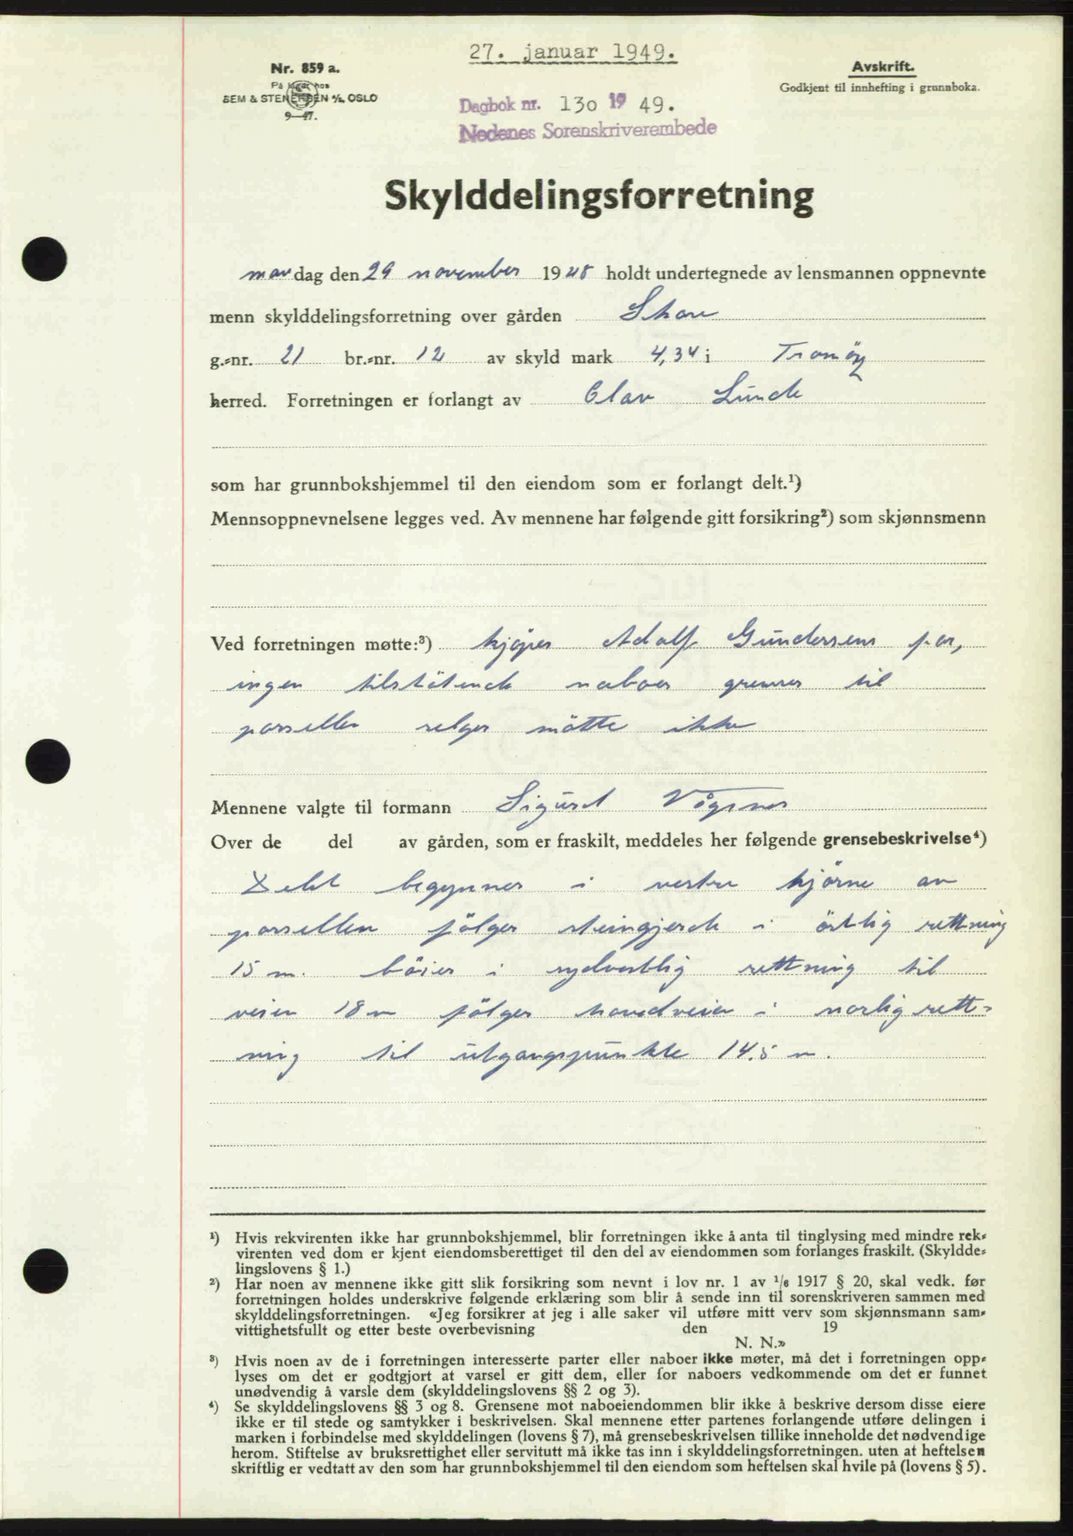 27. januar 1949.
Nr. 859 a.
På lager hos
SEM & STENERSEN A/S, OSLO
9—47.
Avskrift.
Godkjent til innhefting i grunnboka.
Dagbok nr. 130 19 49.
Nedenes Sorenskriverembede
Skylddelingsforretning
mandag den 29 november 1948 holdt undertegnede av lensmannen oppnevnte
menn skylddelingsforretning over gården Skare
g.-nr. 21 br.-nr. 12 av skyld mark 4,34 i Tromöy
herred. Forretningen er forlangt av Olav Lunde
som har grunnbokshjemmel til den eiendom som er forlangt delt.¹)
Mennsoppnevnelsene legges ved. Av mennene har følgende gitt forsikring²) som skjønnsmenn
Ved forretningen møtte:³) kjöper Adolf Gundersens
ingen tilstötende naboer grenser til
parsellen selger mötte ikke
Mennene valgte til formann Sigurd Vågsnes
Over de del av gården, som er fraskilt, meddeles her følgende grensebeskrivelse⁴)
Delet begynner i vestre hjörne av
parsellen fölger steingjerde i östlig rettning
15 m. böier i sydvestlig rettning til
veien 18 m fölger hovedveien i norlig rett-
ning til utgangspunkte 14.5 m.
¹) Hvis rekvirenten ikke har grunnbokshjemmel, blir forretningen ikke å anta til tinglysing med mindre rek-
virenten ved dom er kjent eiendomsberettiget til den del av eiendommen som forlanges fraskilt. (Skyldde-
lingslovens § 1.)
²) Har noen av mennene ikke gitt slik forsikring som nevnt i lov nr. 1 av 1/6 1917 § 20, skal vedk. før
forretningen holdes underskrive følgende erklæring som blir å sende inn til sorenskriveren sammen med
skylddelingsforretningen. «Jeg forsikrer at jeg i alle saker vil utføre mitt verv som skjønnsmann sam-
vittighetsfullt og etter beste overbevisning den 19
N. N.»
³) Hvis noen av de i forretningen interesserte parter eller naboer ikke møter, må det i forretningen opp-
lyses om det er godtgjort at varsel er gitt dem, eller for naboers vedkommende om det er funnet
unødvendig å varsle dem (skylddelingslovens §§ 2 og 3).
⁴) Se skylddelingslovens §§ 3 og 8. Grensene mot naboeiendommen blir ikke å beskrive dersom disse eiere
ikke er til stede og samtykker i beskrivelsen. Skal mennene etter partenes forlangende utføre delingen i
marken i forbindelse med skylddelingen (lovens § 7), må grensebeskrivelsen tillike inneholde det nødvendige
herom. Stiftelse av bruksrettighet eller servitutt må ikke tas inn i skylddelingsforretningen. uten at heftelsen
skriftlig er vedtatt av den som har grunnbokshjemmel til den eiendom som heftelsen skal hvile på (lovens § 5).